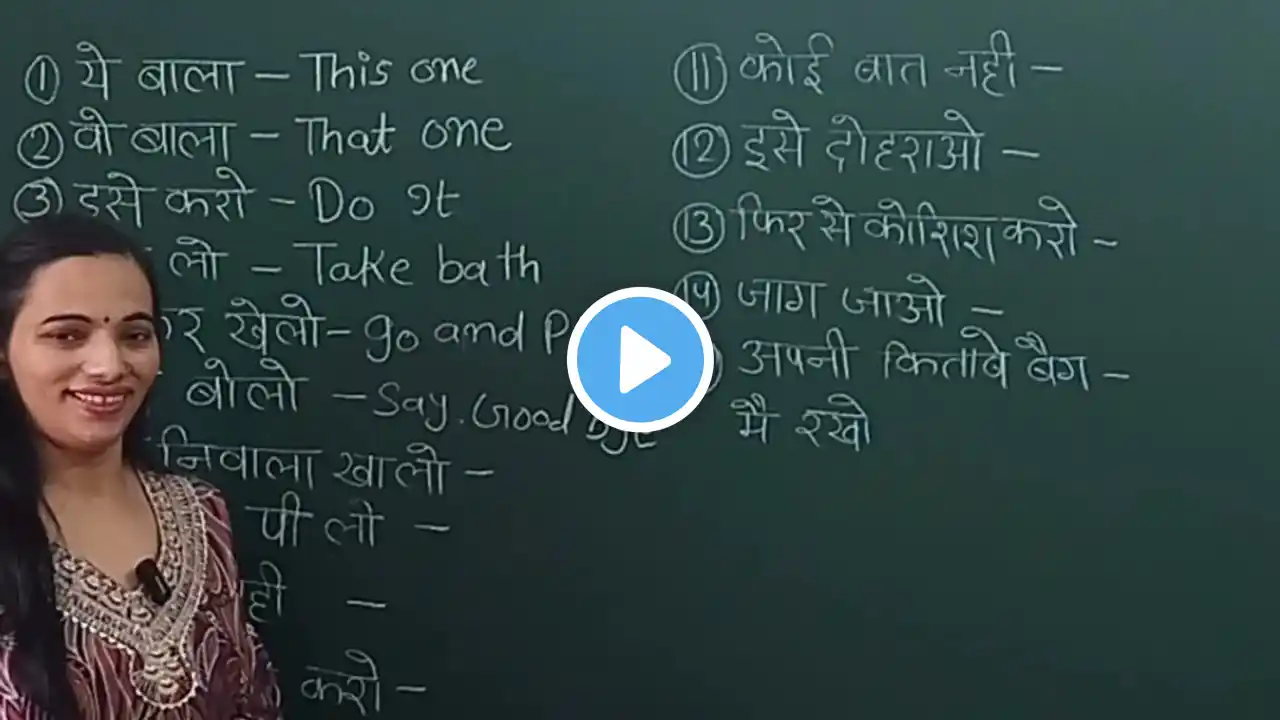 ① ये बाला – This one
② वो बाला – That one
③ इसे करो – Do It
लो – Take bath
खेलो – go and
बोलो – Say. Good bye
निवाला खालो –
पी लो –
–
करो –
⑪ कोई बात नही –
⑫ इसे दोहराओ –
⑬ फिर से कोशिश करो –
⑭ जाग जाओ –
अपनी किताबे बैग –
मै रखो